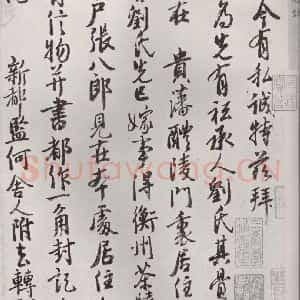 今有私誠特茲拜
為先有祗承人劉氏其骨
在 貴藩醴陵門裏居住
劉氏先已嫁事得衡州茶陵
户張八郎見在本處居住
信物并書都作一角封記
新都監何舍人附去轉
Shufawang.CN